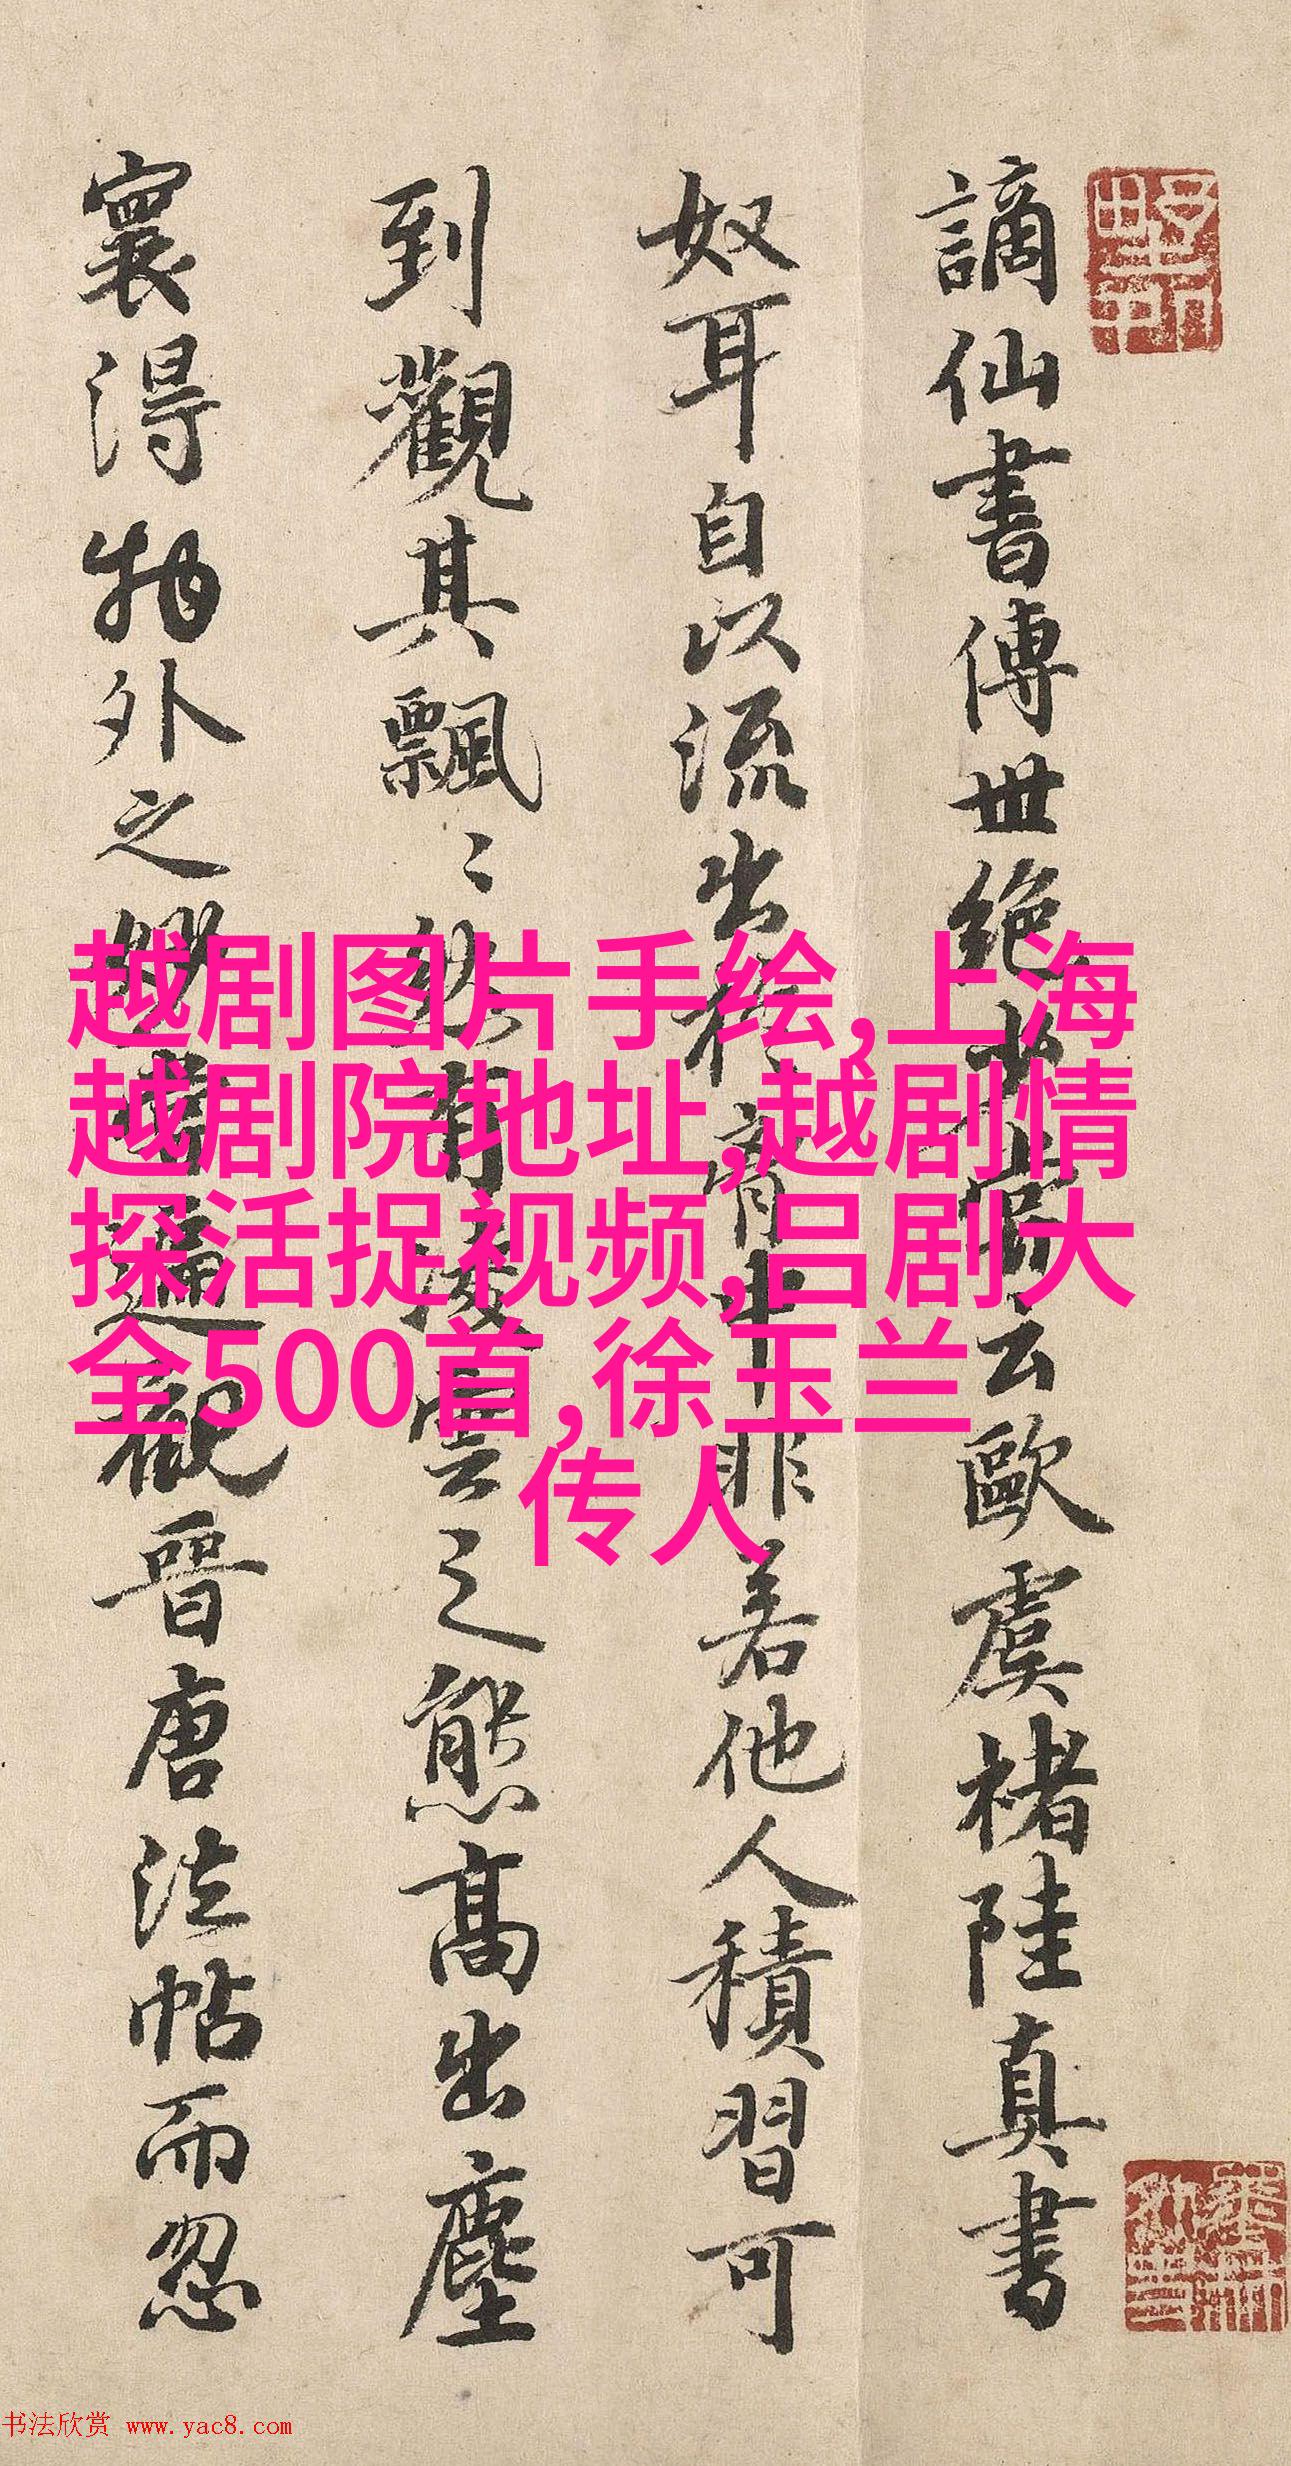 謫仙書傳世絶少嘗云歐虞褚陸真書
奴耳自以流出於胷中非若他人積習可
到觀其飄〻然有凌雲之態高出塵
寰得物外之妙嘗遍觀晉唐法帖而忽
越剧图片手绘,上海
越剧院地址,越剧情
探活捉视频,吕剧大
全500首,徐玉兰
传人
书法欣赏 www.yac8.com